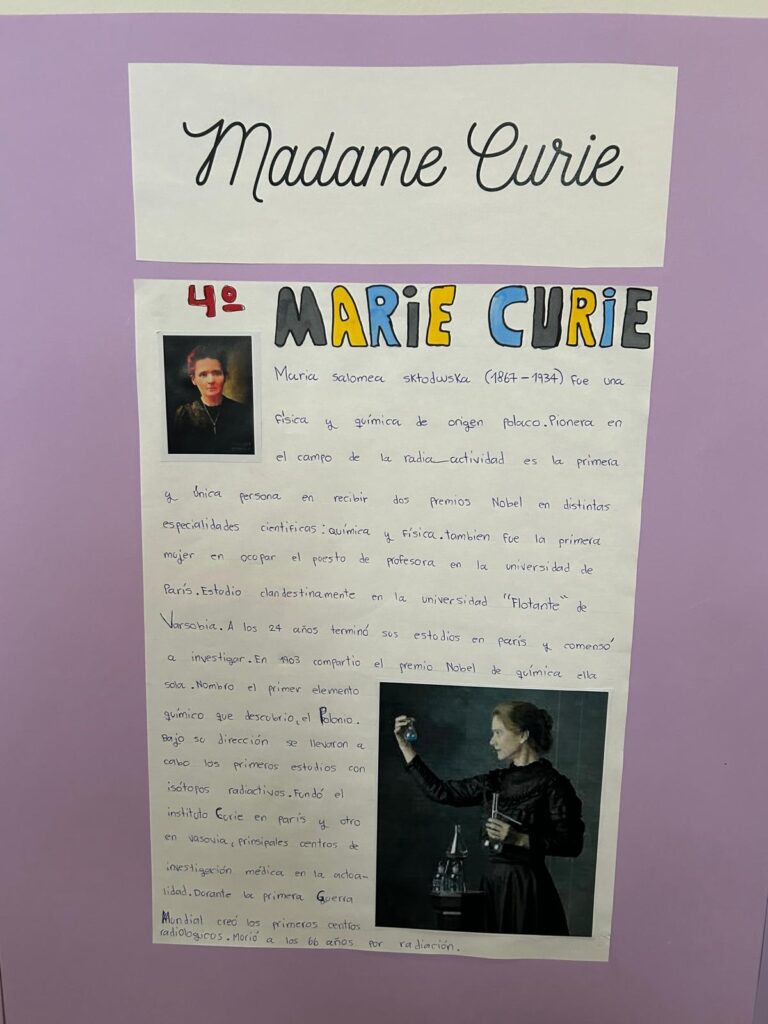 Madame Curie
4º MARiE CURiE
Maria salomea skłodwska (1867-1934) Fue una
física y química de origen polaco. Pionera en
el campo de la radia_actividad es la primera
y única persona en recibir dos premios Nobel en distintas
especialidades científicas: química y física. tambien fue la primera
mujer en ocopar el poesto de profesora en la universidad de
París. Estudio clandestinamente en la universidad "Flotante" de
Varsobia. A los 24 años terminó sus estudios en parís y comensó
a investigar. En 1903 compartio el premio Nobel de química ella
sola. Nombro el primer elemento
químico que descubrio, el Polonio.
Bajo su dirección se llevaron a
cabo los primeros estudios con
isótopos radiactivos. Fundó el
instituto Curie en parís y otro
en vasovia, prinsipales centros de
investigación médica en la actoa-
lidad. Dorante la primera Guerra
Mundial creó los primeros centros
radiologicos. Morió a los 66 años por radiación.